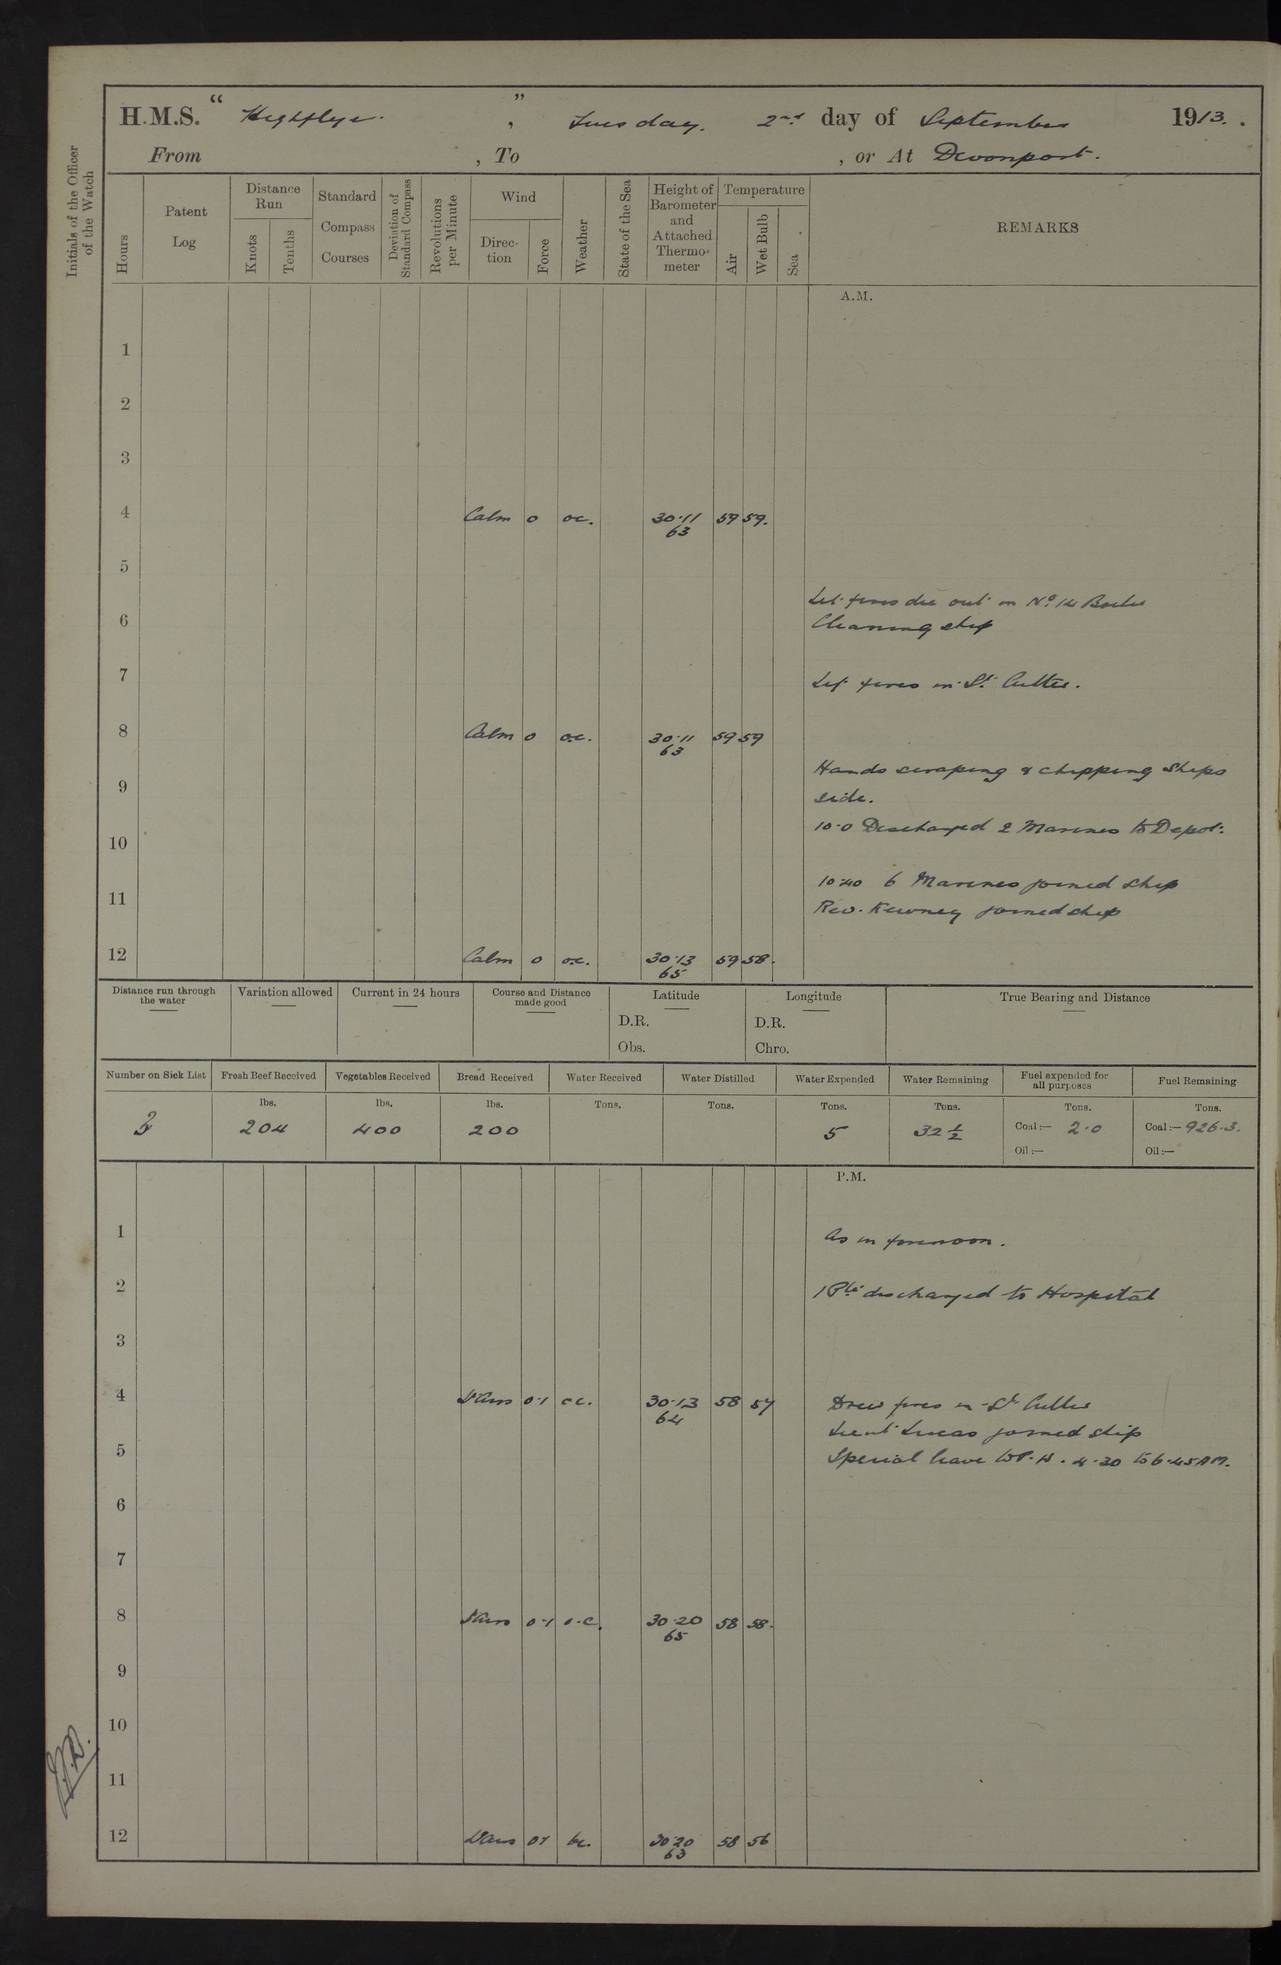 H.M.S. "Highflyer.", Tuesday. 2nd day of September 1913.
From , To , or At Devonport.
Initials of the Officer of the Watch
Hours
Patent Log
Distance Run
Knots
Tenths
Standard Compass Courses
Deviation of Standard Compass
Revolutions per Minute
Wind
Direction
Force
Weather
State of the Sea
Height of Barometer and Attached Thermometer
Temperature
Air
Wet Bulb
Sea
REMARKS
A.M.
1
2
3
4 Calm 0 oc. 30.11 59 59.
63
5
Let fires die out in No. 14 Boiler
6 Cleaning ship
7 Lit fires in St. Cutter.
8 Calm 0 o.c. 30.11 59 59
63
Hands scraping & chipping Ships
9 side.
10.0 Discharged 2 Marines to Depot.
10
10.40 6 Marines joined ship
11 Rev. Kewney joined ship
12 Calm 0 o.c. 30.13 59 58.
65
Distance run through the water
Variation allowed
Current in 24 hours
Course and Distance made good
Latitude
D.R.
Obs.
Longitude
D.R.
Chro.
True Bearing and Distance
Number on Sick List Fresh Beef Received Vegetables Received Bread Received Water Received Water Distilled Water Expended Water Remaining Fuel expended for all purposes Fuel Remaining
lbs. lbs. lbs. Tons. Tons. Tons. Tons. Tons. Tons.
204 400 200 5 32 1/2 Coal:— 2.0 Coal:— 926.3.
Oil:— Oil:—
P.M.
1 As in forenoon.
2 1 Pte. discharged to Hospital
3
4 Vars 0-1 oc. 30.13 58 57 Drew fires in St. Cutter
64
Lieut. Lucas joined ship
5 Special leave W.P.H. 4.30 to 6.45 AM.
6
7
8 Vars 0-1 o.c. 30.20 58 58.
65
9
10
11
12 Vars 01 bc. 30.20 58 56
63